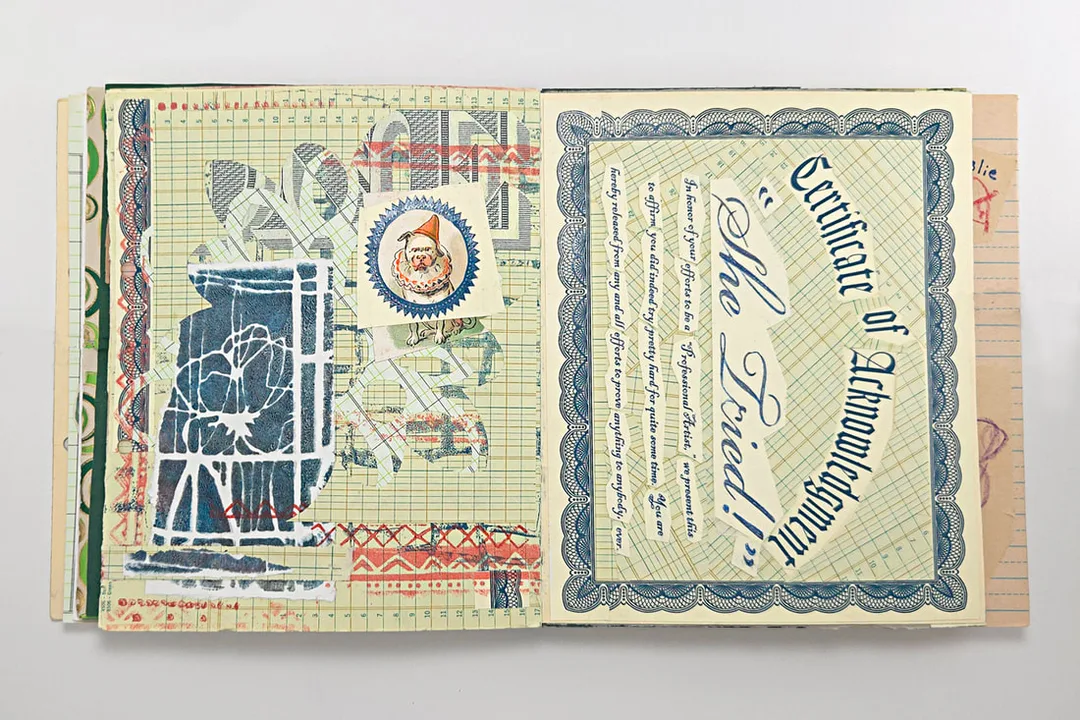 Certificate of Acknowledgment
"She Tried!"
In honor of your efforts to be a "Professional Artist," we present this
to affirm you did indeed try, pretty hard for quite some time. You are
hereby released from any and all efforts to prove anything to anybody, ever.